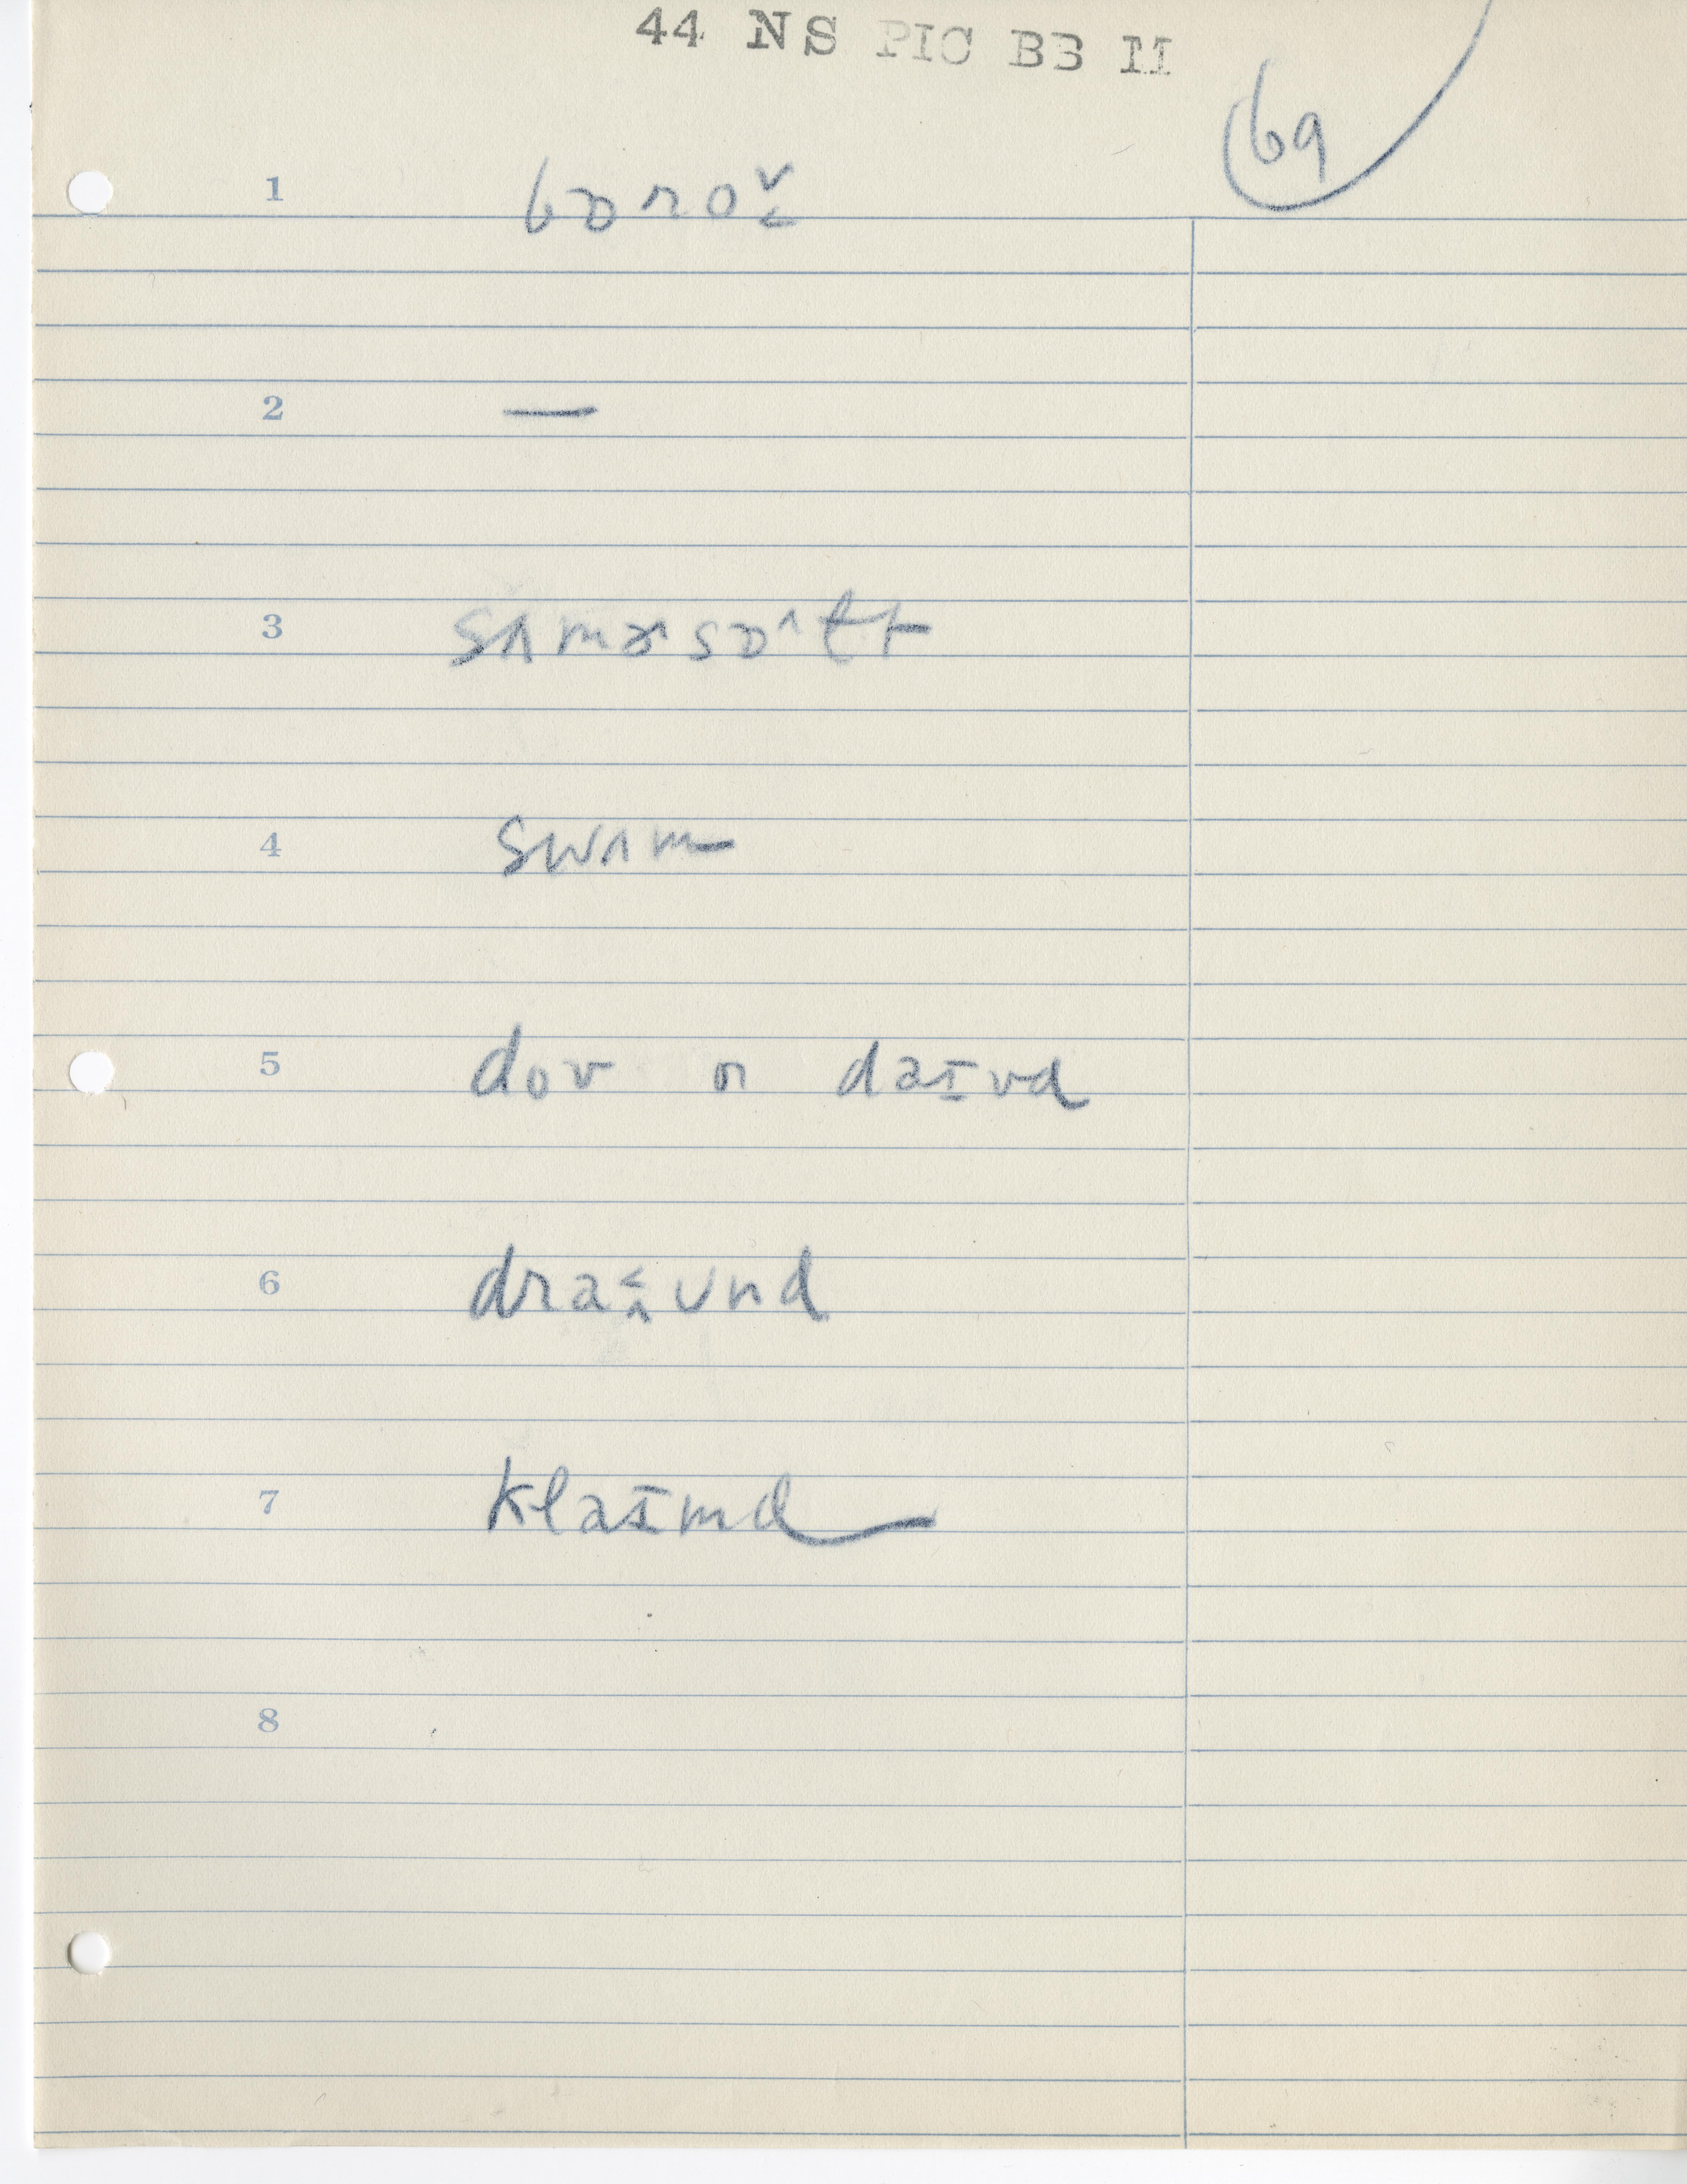 44 NS PIC BB II
69
1
2 —
3
4 swʌm
5 dov or daɪvd
6
7 klaɪmd
8